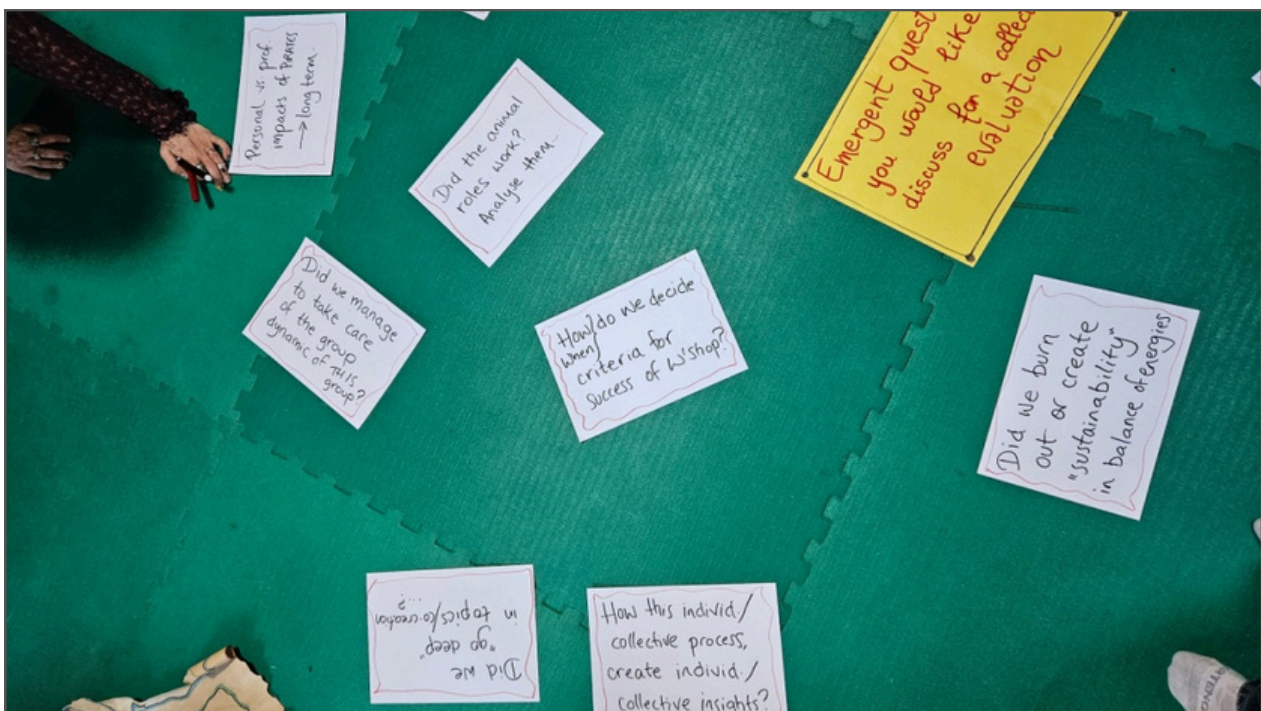 Personal vs. prof.
impacts of PIRATES
→ long term.
Did the animal
roles work?
Analyse them.
Emergent quest
you would like
discuss for a collec
evaluation
Did we manage
to take care
of the group
dynamic of THIS
group?
How/ do we decide
when/
criteria for
success of W'shop?
Did we burn
out or create
"sustainability"
in balance of energies
Did we
"go deep"
in topics/co-creation
...?
How this individ./
collective process,
create individ./
collective insights?